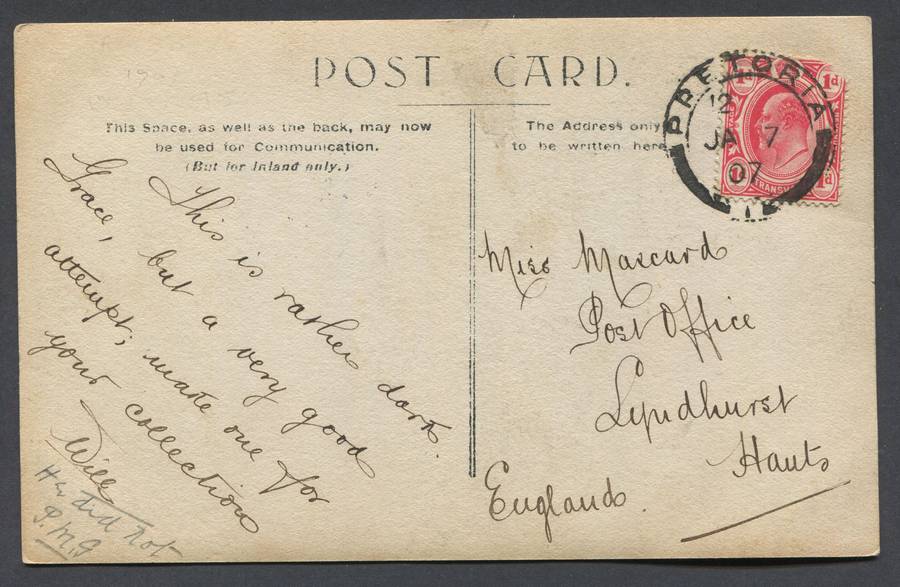 POST CARD.
This Space, as well as the back, may now
be used for Communication.
(But for Inland only.)
The Address only
to be written here
PRETORIA
12
JA 7
07
1d 1d
TRANSV
1d
This is rather dark
Grace, but a very good
attempt; make one for
your collection
Will
not
P.M.G
Miss Mascard
Post Office
Lyndhurst
Hants
England.